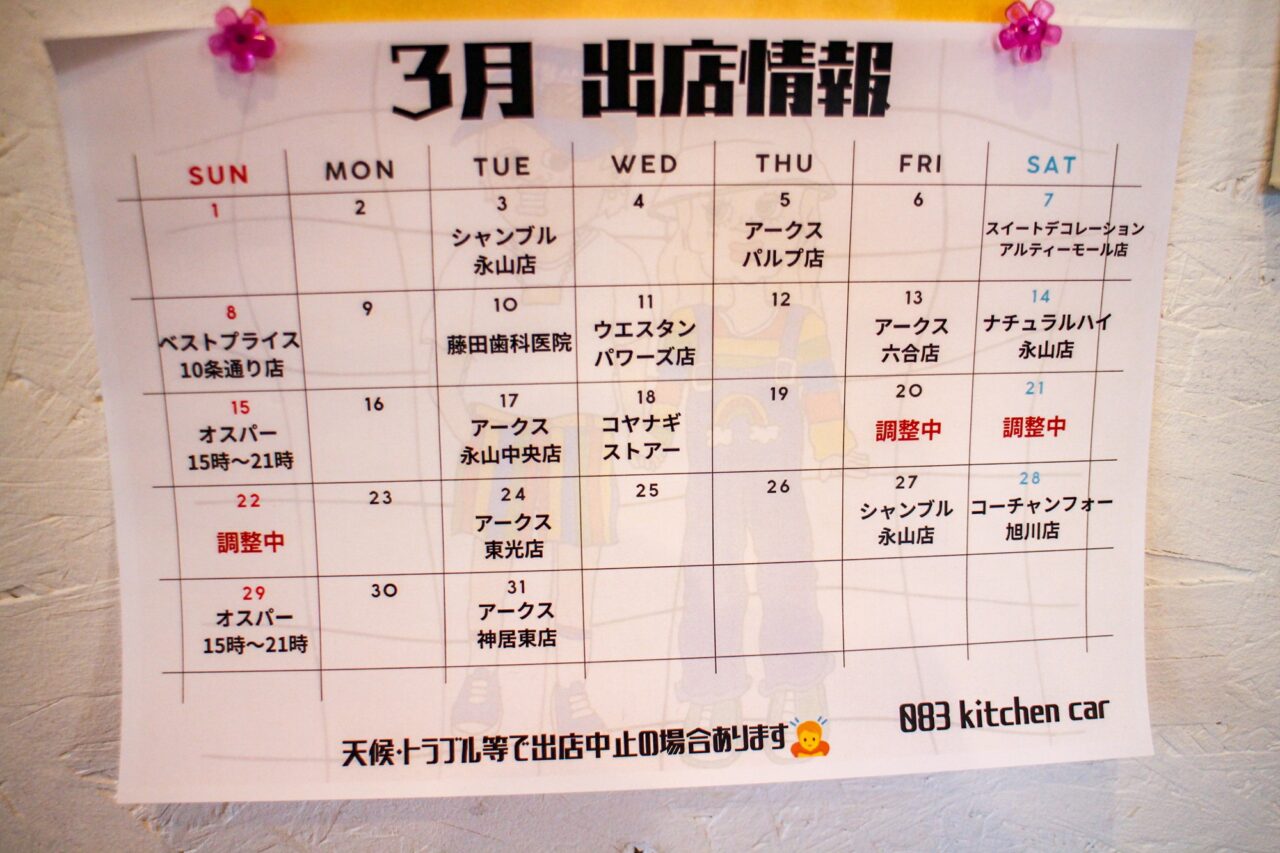 3月 出店情報
SUN MON TUE WED THU FRI SAT
1 2 3 4 5 6 7
シャンブル
永山店
アークス
パルプ店
スイートデコレーション
アルティーモール店
8 9 10 11 12 13 14
ベストプライス
10条通り店
藤田歯科医院
ウエスタン
パワーズ店
アークス
六合店
ナチュラルハイ
永山店
15 16 17 18 19 20 21
オスパー
15時～21時
アークス
永山中央店
コヤナギ
ストアー
調整中
調整中
22 23 24 25 26 27 28
調整中
アークス
東光店
シャンブル
永山店
コーチャンフォー
旭川店
29 30 31
オスパー
15時～21時
アークス
神居東店
083 kitchen car
天候・トラブル等で出店中止の場合あります🙇